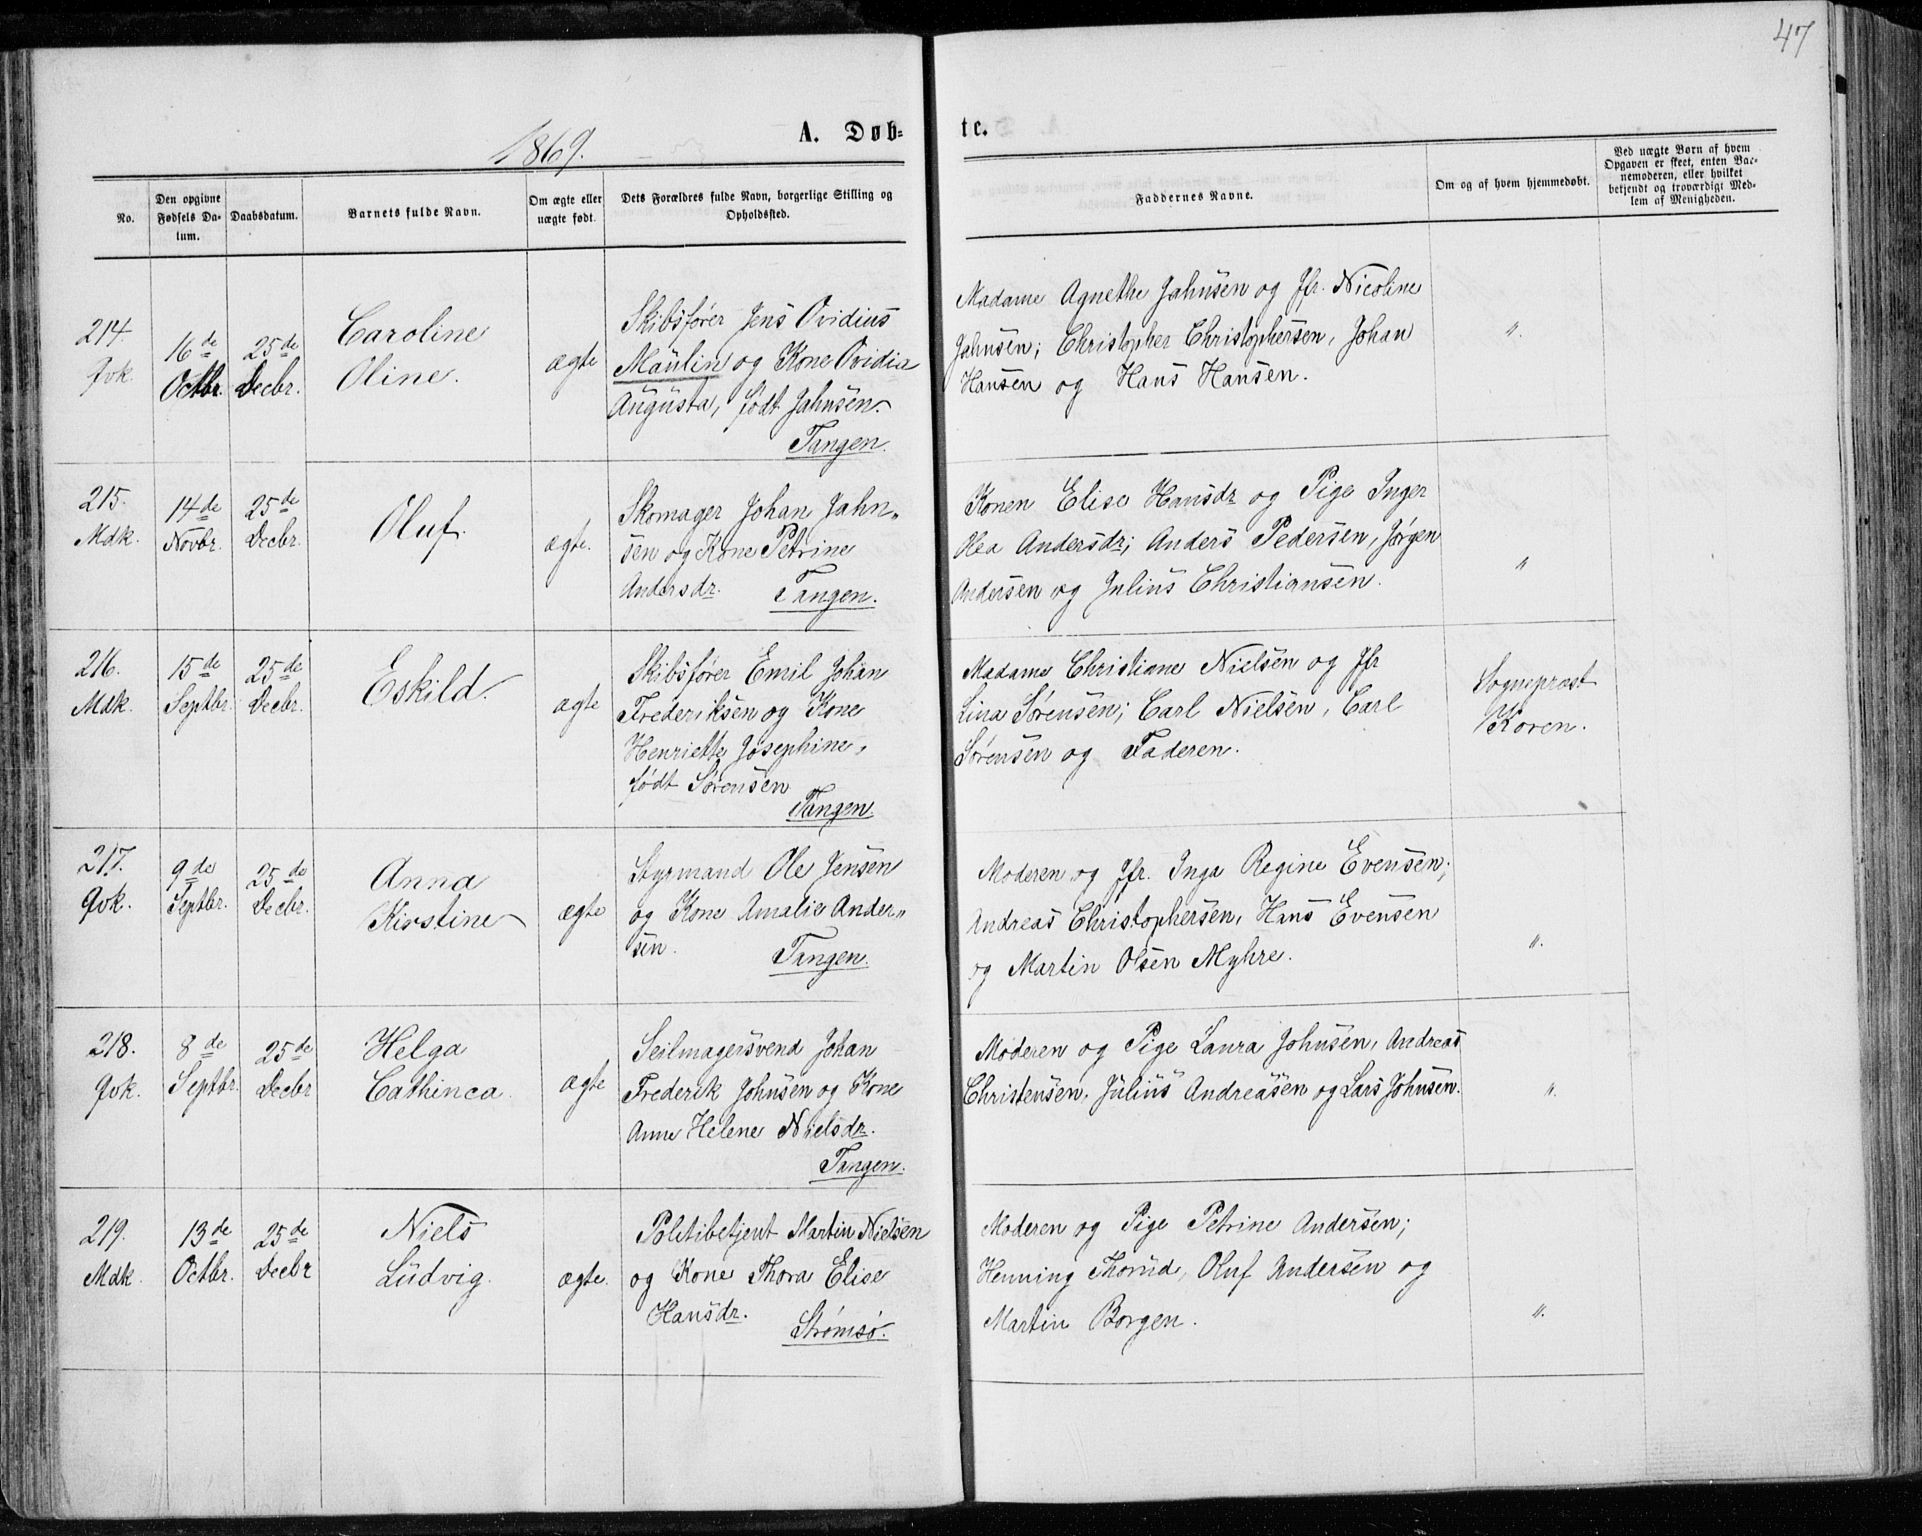 47
1869.
A. Døb-
te.
No.
Den opgivne
Fødsels Da-
tum.
Daabsdatum.
Barnets fulde Navn.
Om ægte eller
uægte født.
Dets Forældres fulde Navn, borgerlige Stilling og
Opholdssted.
Faddernes Navne.
Om og af hvem hjemmedøbt.
Ved uægte Børn af hvem
Opgaven er skeet, enten Bar-
nemoderen, eller hvilket
betjendt og troværdigt Med-
lem af Menigheden.
214.
Qvk.
16de
Octbr.
25de
Decbr.
Caroline
Oline.
ægte
Skibsfører Jens Ovidius
Maulin og Kone Ovidia
Augusta, født Jahnsen.
Tangen.
Madame Agnethe Jahnsen og Jfr. Nicoline
Jahnsen; Christopher Christophersen, Johan
Hansen og Hans Hansen.
"
215.
Mdk.
14de
Novbr.
25de
Decbr.
Oluf.
ægte.
Skomager Johan Jahn„
sen og Kone Petrine
Andersdr. Tangen.
Konen Elise Hansdr og Pige Inger
Olea Andersdr; Anders Pedersen, Jørgen
Andersen og Julius Christiansen.
"
216.
Mdk.
15de
Septbr.
25de
Decbr.
Eskild.
ægte
Skibsfører Emil Johan
Frederiksen og Kone
Henriette Josephine,
født Sørensen
Tangen.
Madame Christiane Nielsen og Jfr
Lina Sørensen; Carl Nielsen, Carl
Sørensen og Faderen.
Sognepræst
Koren.
217.
Qvk.
9de
Septbr.
25de
Decbr.
Anna
Kirstine
ægte
Styrmand Ole Jensen
og Kone Amalie Ander„
sen. Tangen.
Moderen og Jfr. Inga Regine Evensen;
Andreas Christophersen, Hans Evensen
og Martin Olsen Myhre.
"
218.
Qvk.
8de
Septbr.
25de
Decbr
Helga
Cathinca.
ægte
Seilmagersvend Johan
Frederik Johnsen og Kone
Anne Helene Nielsdr.
Tangen.
Moderen og Pige Laura Johnsen, Andreas
Christensen, Julius Andreassen og Lars Johnsen.
"
219.
Mdk.
13de
Octbr.
25de
Decbr
Niels
Ludvig.
ægte.
Politibetjent Martin Nielsen
og Kone Thora Elise
Hansdr. Strømsø.
Moderen og Pige Petrine Andersen;
Henning Thorud, Oluf Andersen og
Martin Borgen.
"